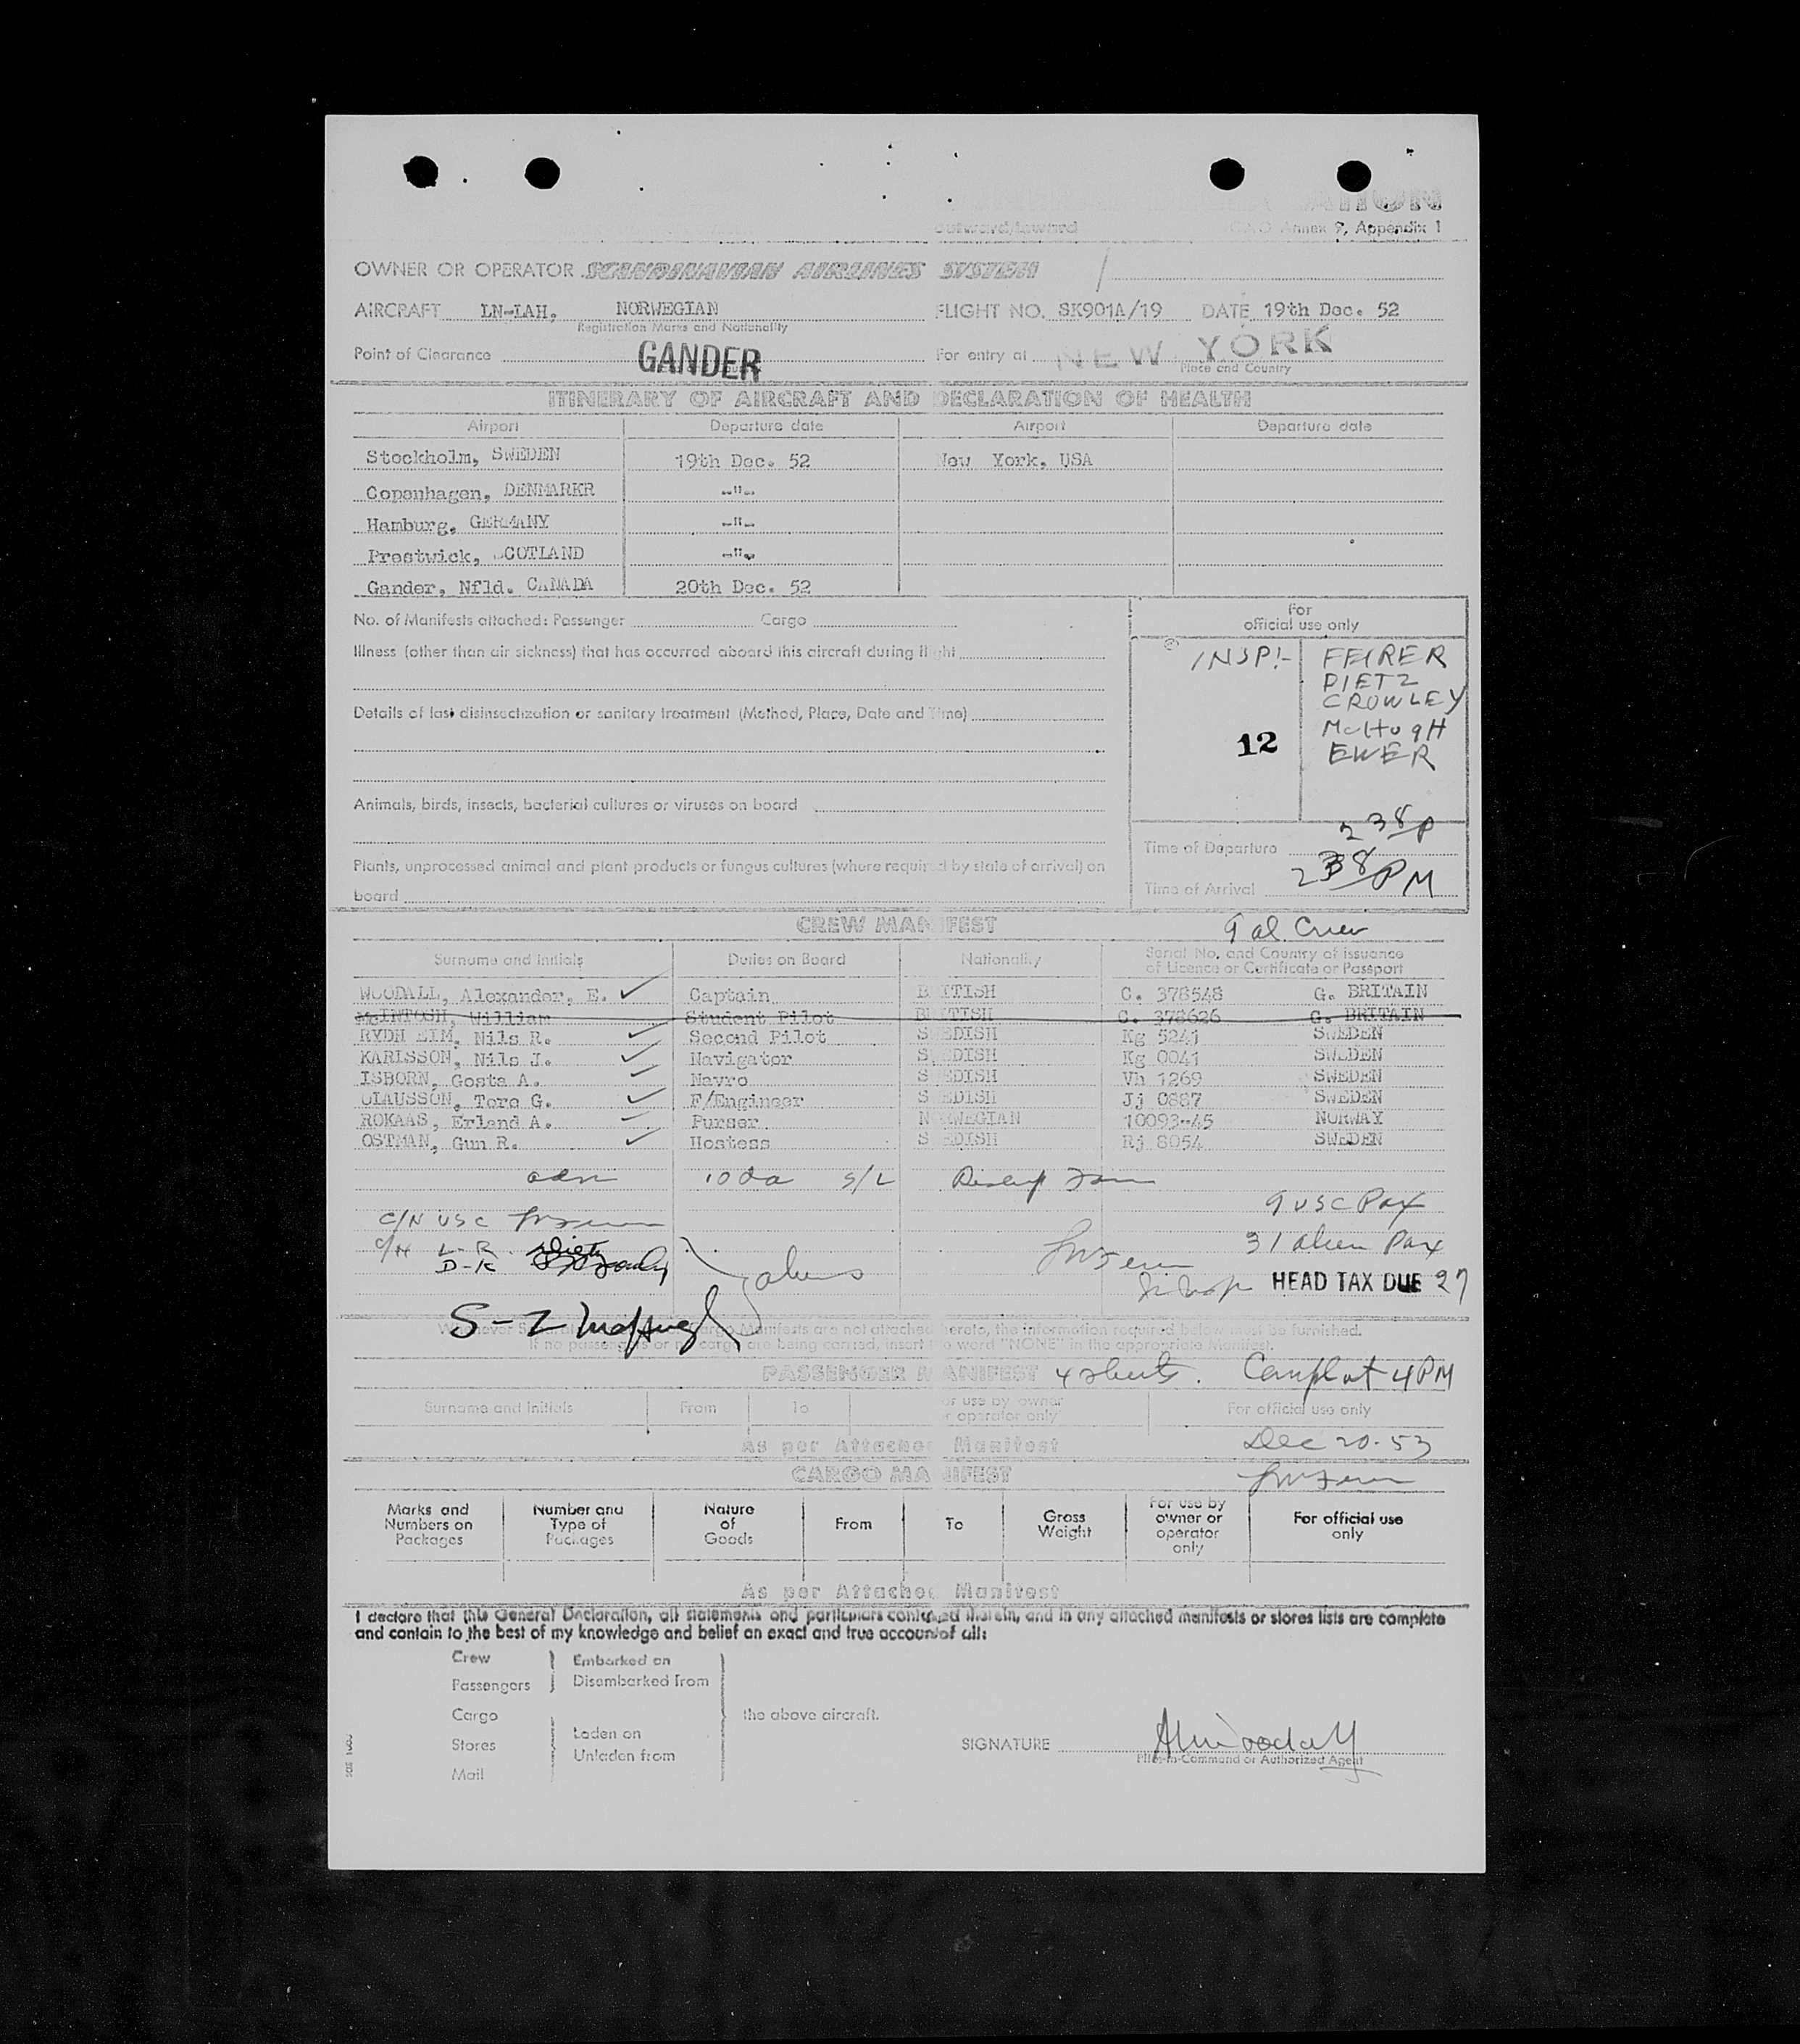 Outward/Inward
ICAO Annex 9, Appendix 1
OWNER OR OPERATOR SCANDINAVIAN AIRLINES SYSTEM
AIRCRAFT LN-LAH, NORWEGIAN FLIGHT NO. SK901A/19 DATE 19th Dec. 52
Registration Marks and Nationality
Point of Clearance GANDER For entry at NEW YORK
Place and Country
ITINERARY OF AIRCRAFT AND DECLARATION OF HEALTH
Airport Departure date Airport Departure date
Stockholm, SWEDEN 19th Dec. 52 New York, USA
Copenhagen, DENMARKR -"-
Hamburg, GERMANY -"-
Prestwick, SCOTLAND -"-
Gander, Nfld. CANADA 20th Dec. 52
No. of Manifests attached: Passenger Cargo
For
official use only
Illness (other than air sickness) that has occurred aboard this aircraft during flight
INSP:- FEIRER
DIETZ
CROWLEY
McHugH
EWER
12
Details of last disinsectization or sanitary treatment (Method, Place, Date and Time)
Animals, birds, insects, bacterial cultures or viruses on board
Plants, unprocessed animal and plant products or fungus cultures (where required by state of arrival) on
board
Time of Departure 2 38 P
Time of Arrival 2 38 PM
CREW MANIFEST 9 al Crew
Surname and Initials Duties on Board Nationality Serial No. and Country of issuance
of Licence or Certificate or Passport
WOODALL, Alexander, E. Captain BRITISH C. 378548 G. BRITAIN
McINTOSH, William Student Pilot BRITISH C. 378626 G. BRITAIN
RYDH EIM, Nils R. Second Pilot SWEDISH Kg 5241 SWEDEN
KARLSSON, Nils J. Navigator SWEDISH Kg 0041 SWEDEN
ISBORN, Gosta A. Navro SWEDISH Vh 1269 SWEDEN
OLAUSSON, Tore G. F/Engineer SWEDISH Jj 0887 SWEDEN
ROKAAS, Erland A. Purser NORWEGIAN 10093-45 NORWAY
OSTMAN, Gun R. Hostess SWEDISH Rj 8054 SWEDEN
adm 10 da S/L
9 USC Pax
C/N USC
31 alien Pax
L-R
D-K
aliens
HEAD TAX DUE 27
S-Z McHugh
Whenever Separate Passenger or Cargo Manifests are not attached hereto, the information required below must be furnished.
If no passengers or no cargo are being carried, insert the word "NONE" in the appropriate Manifest.
PASSENGER MANIFEST 4 sheets. Complet 4 PM
Surname and Initials From To For use by owner
or operator only For official use only
As per Attached Manifest Dec 20-53
CARGO MANIFEST
Marks and
Numbers on
Packages
Number and
Type of
Packages
Nature
of
Goods
From
To
Gross
Weight
For use by
owner or
operator
only
For official use
only
As per Attached Manifest
I declare that this General Declaration, all statements and particulars contained therein, and in any attached manifests or stores lists are complete
and contain to the best of my knowledge and belief an exact and true account of all:
Crew Embarked on
Passengers Disembarked from
Cargo the above aircraft.
Stores Laden on
Unladen from
Mail
SIGNATURE AWoodall
Pilot-in-Command or Authorized Agent